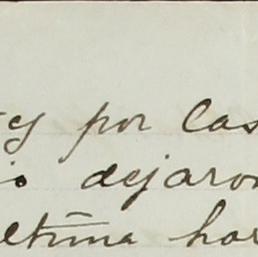 y por las
dejaron
ultima hor